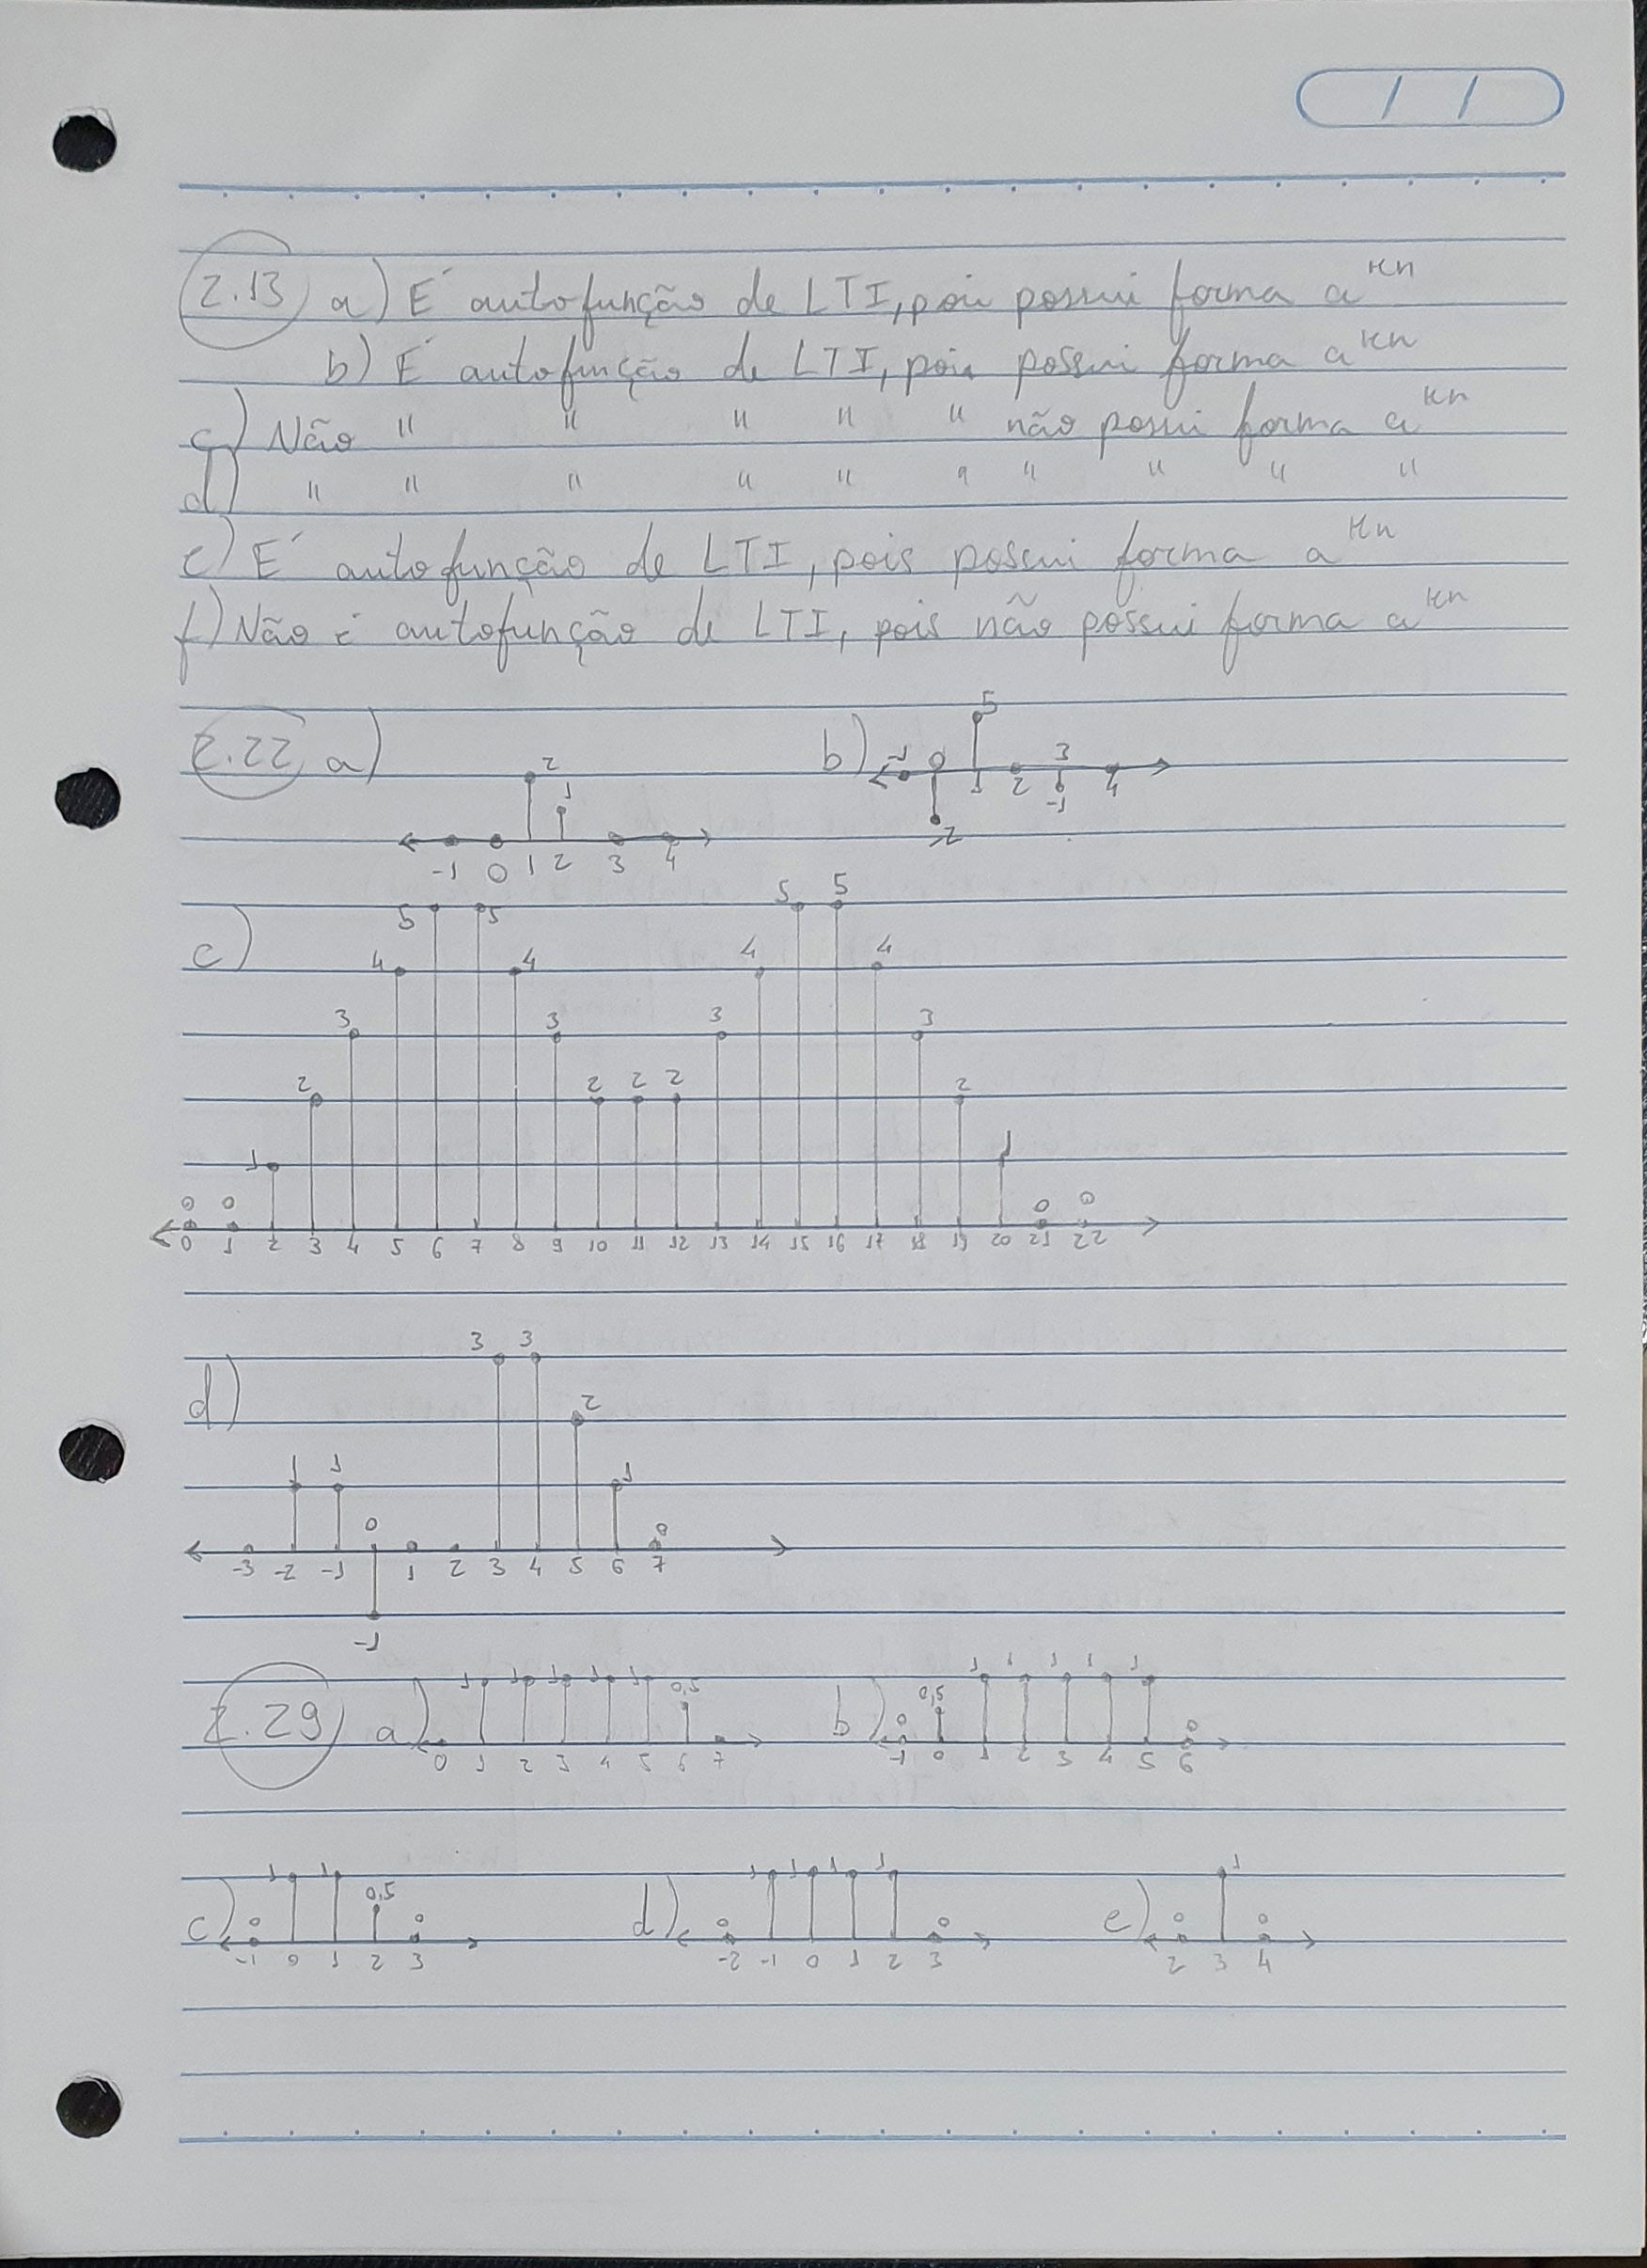 / /
2.13 a) É autofunção de LTI, pois possui forma a^kn
b) É autofunção de LTI, pois possui forma a^kn
c) Não " " " " " não possui forma a^kn
d) " " " " " " " " " "
e) É autofunção de LTI, pois possui forma a^kn
f) Não é autofunção de LTI, pois não possui forma a^kn
2.22 a) 2 1
-1 0 1 2 3 4
b) 5
-1 0 1 2 3 4
-2 -1
c) 5 5 5 5
4 4 4 4
3 3 3 3
2 2 2 2 2
1 1
0 0 0 0
0 1 2 3 4 5 6 7 8 9 10 11 12 13 14 15 16 17 18 19 20 21 22
d) 3 3
2
1 1 1
0 0
-3 -2 -1 1 2 3 4 5 6 7
-1
2.29 a) 1 1 1 1 1 0,5
0 1 2 3 4 5 6 7
b) 0 0,5 1 1 1 1 1 0
-1 0 1 2 3 4 5 6
c) 0 1 1 0,5 0
-1 0 1 2 3
d) 0 1 1 1 1 0
-2 -1 0 1 2 3
e) 0 1 0
2 3 4